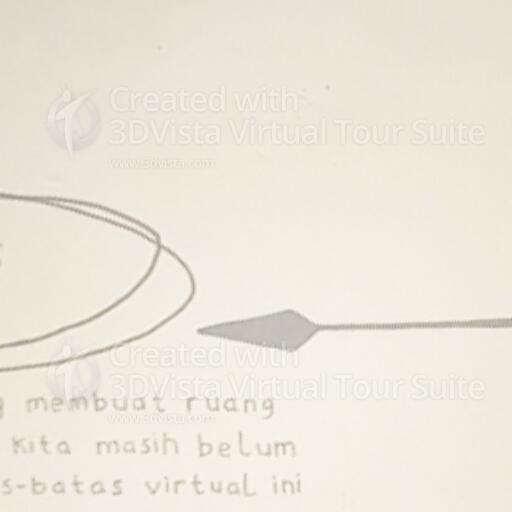 Created with
3DVista Virtual Tour Suite
www.3dvista.com
Created with
3DVista Virtual Tour Suite
www.3dvista.com
membuat ruang
kita masih belum
s-batas virtual ini